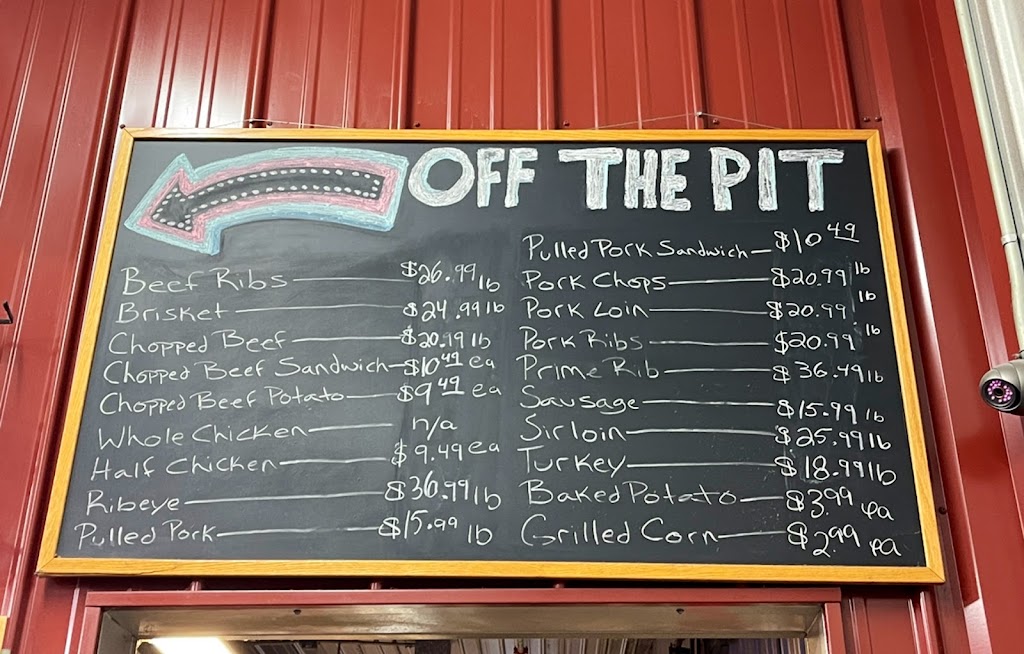 OFF THE PIT
Beef Ribs $26.99 lb
Brisket $24.99 lb
Chopped Beef $20.99 lb
Chopped Beef Sandwich $10.49 ea
Chopped Beef Potato $9.49 ea
Whole Chicken n/a
Half Chicken $9.49 ea
Ribeye $36.99 lb
Pulled Pork $15.99 lb
Pulled Pork Sandwich $10 49
Pork Chops $20.99 lb
Pork Loin $20.99 lb
Pork Ribs $20.99 lb
Prime Rib $36.49 lb
Sausage $15.99 lb
Sirloin $25.99 lb
Turkey $18.99 lb
Baked Potato $3.99 ea
Grilled Corn $2.99 ea